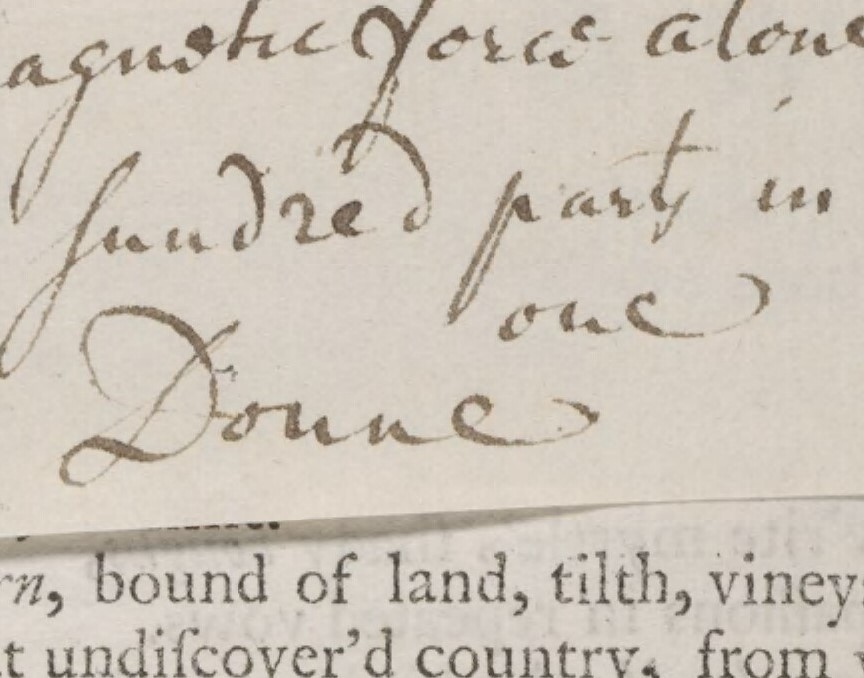 agnetic force alone
ſundred parts in
one
Donne
rn, bound of land, tilth, viney
t undiſcover'd country, from